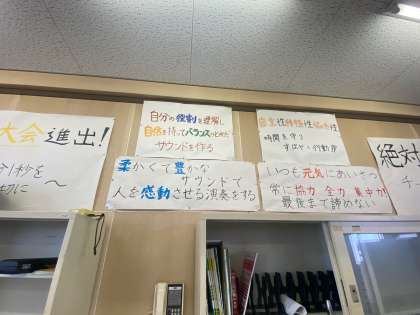 大会進出!
1秒を
切に
～
自分の役割を理解し
自信を持ってバランスのとれた
サウンドを作る
柔かくて豊かな
サウンドで
人を感動させる演奏をする
時間を守り
すばやい行動力
いつも元気にあいさつ
常に協力 全力 集中力
最後まで諦めない
絶対
チー